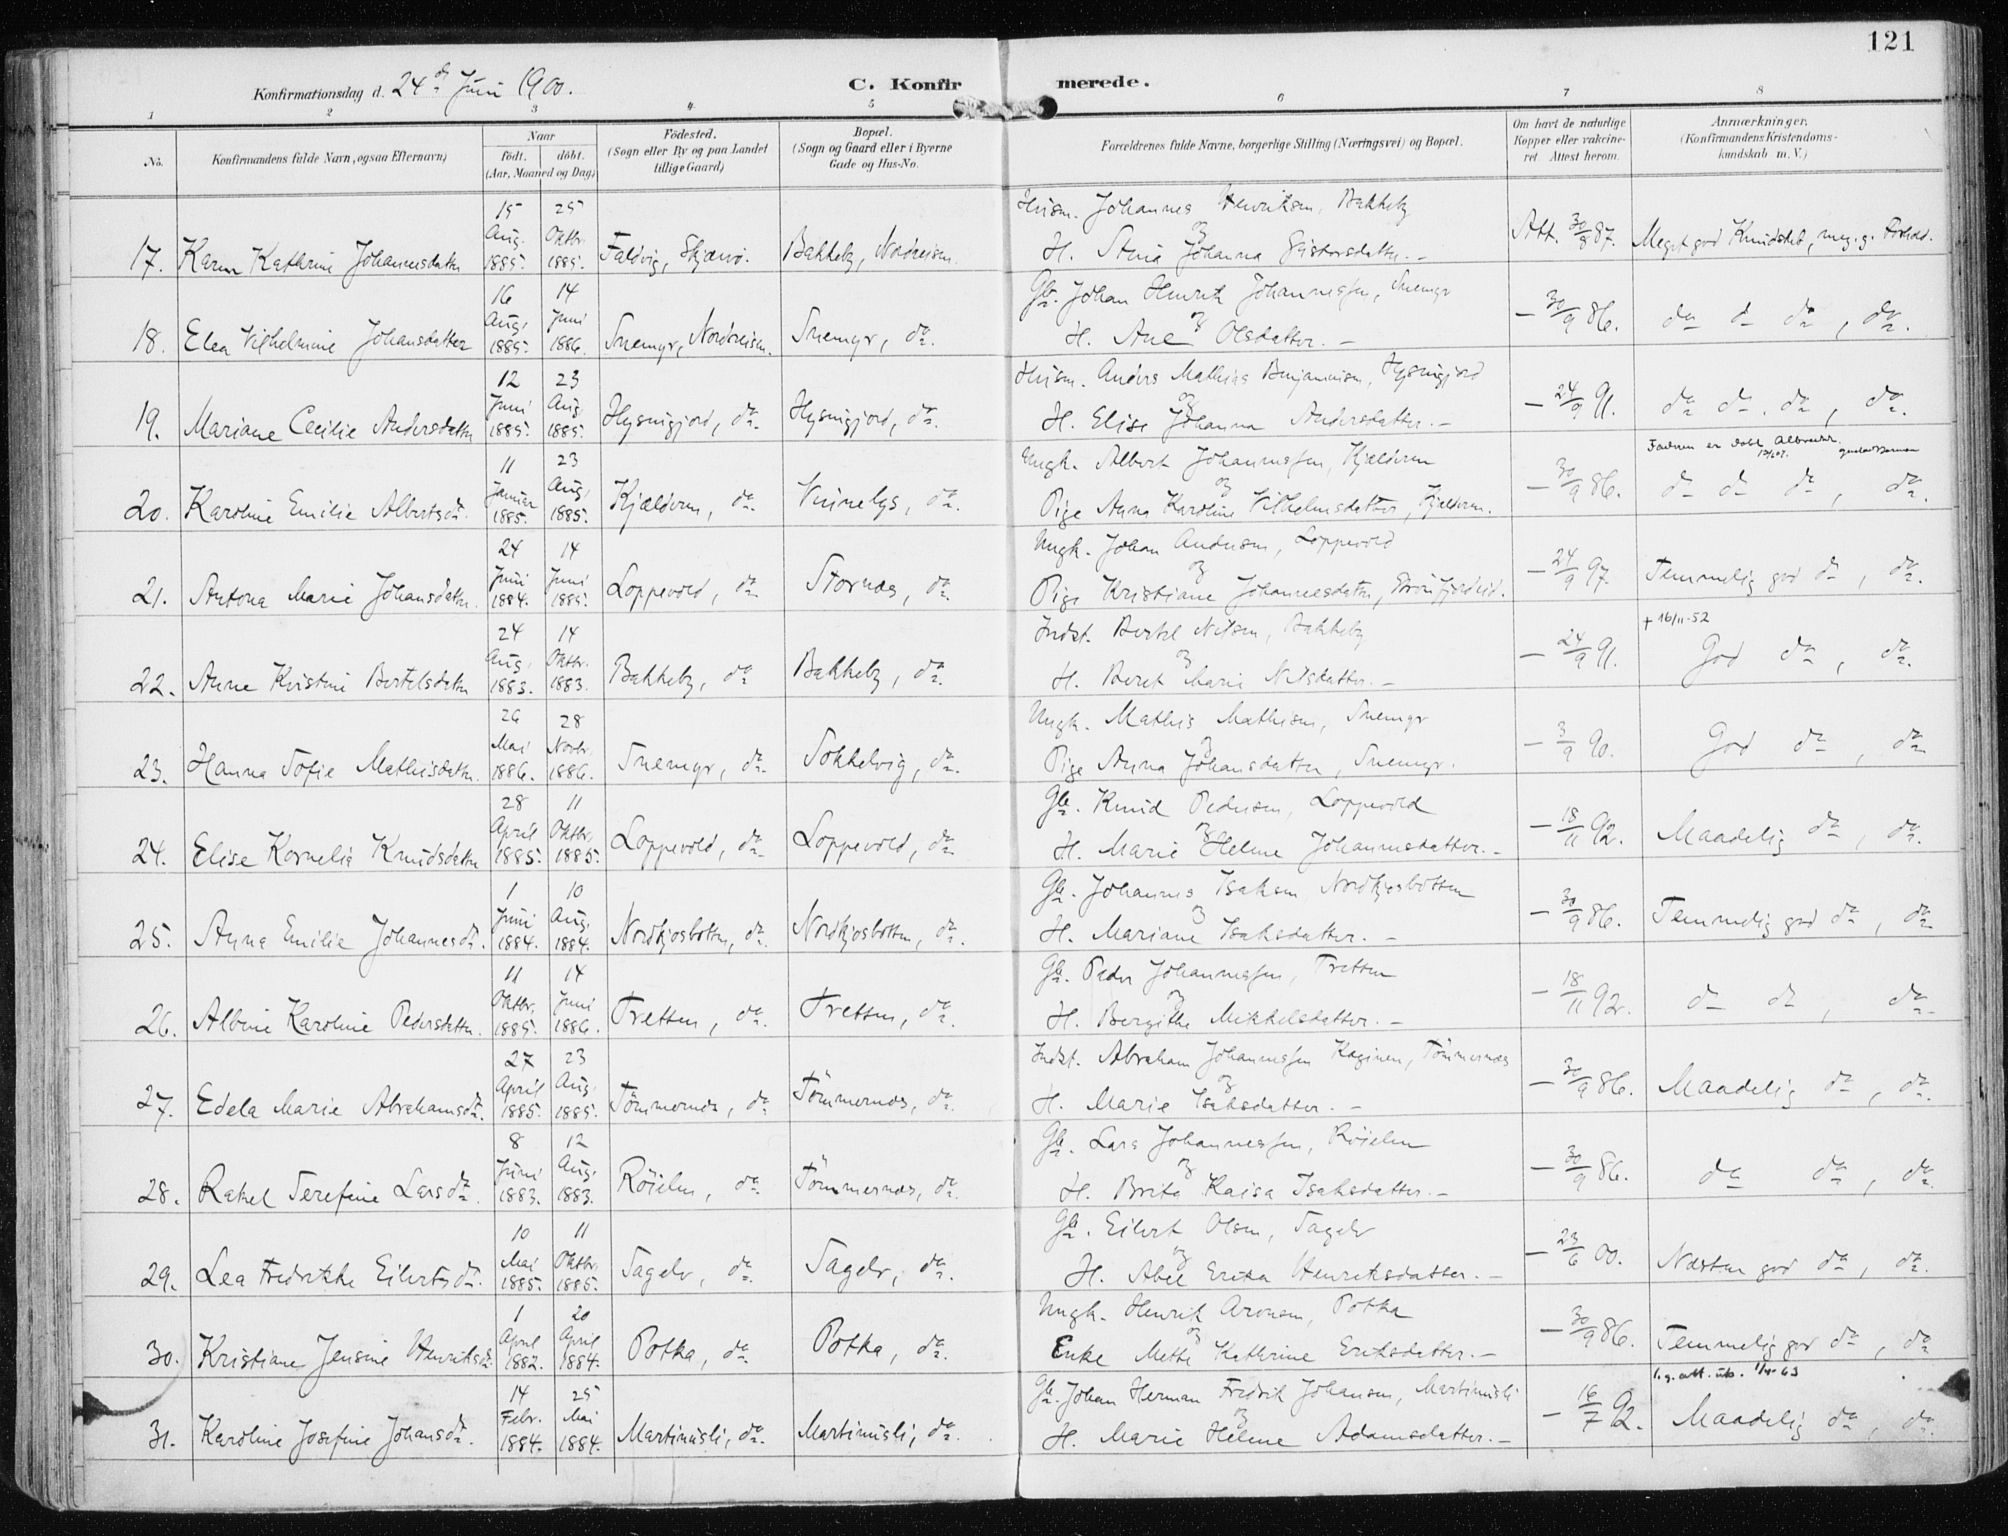 121
Konfirmationsdag d. 24de Juni 1900.
C. Konfirmerede.
1 2 3 4 5 6 7 8
No.
Konfirmandens fulde Navn, ogsaa Efternavn)
Naar
födt. döbt.
(Aar, Maaned og Dag)
Födested.
(Sogn eller By og paa Landet
tillige Gaard)
Bopæl.
(Sogn og Gaard eller i Byerne
Gade og Hus-No.
Forældrenes fulde Navne, borgerlige Stilling (Næringsvei) og Bopæl.
Om havt de naturlige
Kopper eller vakcine-
ret. Attest herom.
Anmærkninger.
(Konfirmandens Kristendoms-
kundskab m. V.)
17. Karen Kathrine Johannesdatter 15 Aug. 1885. 25 Oktbr. 1885. Faldvig, Skjærvö. Bakkeby, Nordreisen.
Husm. Johannes Henriksen, Bakkeby
og
H. Stina Johanna
Att. 30/8 87. Meget god Kundskab, meg. g. Forhold.
18. Elea Vilhelmine Johansdatter 16 Aug. 1885. 14 Juni 1886. Snemyr, Nordreisen. Snemyr, do.
Gbr. Johan Henrik Johannessen, Snemyr
og
H. Ane Olsdatter. –
– 30/9 86. do d do, do.
19. Mariane Cecilie Andersdatter 12 Juni 1885. 23 Aug. 1885. Hysingjord, do. Hysingjord, do.
Husm. Anders Mathias Benjaminsen, Hysingjord
og
H. Elise Johanna Andersdatter. –
– 24/9 91. do do. do, do.
20. Karoline Emilie Albertsdr. 11 Januar 1885. 23 Aug. 1885. Kjælderen, do. Vinnelys, do.
Ungk. Albert Johannessen, Kjælderen
og
Pige Anna Karoline Vilhelmsdatter, Kjælderen.
– 30/9 86. Faderen er döbt
d d do, do.
21. Antona Marie Johansdatter. 24 Juni 1884. 14 Juni 1885. Loppevold, do Stornæs, do.
Ungk. Johan Andersen, Loppevold
og
Pige Kristiane Johannesdatter,
– 24/9 97. Temmelig god do, do.
22. Anne Kristine Bertelsdatter 24 Aug. 1883. 14 Oktbr. 1883. Bakkeby, do Bakkeby, do.
Indst. Bertel Nilsen, Bakkeby
og
H. Beret Marie Nilsdatter. –
– 24/9 91. + 16/11-52
God do, do.
23. Hanna Sofie Mathisdatter. 26 Mai 1886. 28 Novbr. 1886. Snemyr, do. Sokkelvig, do.
Ungk. Mathis Mathisen, Snemyr
og
Pige Anna Johansdatter, Snemyr.
– 3/9 90. God do, do
24. Elise Kornelia Knudsdatter 28 April 1885. 11 Oktbr. 1885. Loppevold, do. Loppevold, do.
Gbr. Knud Pedersen, Loppevold
og
H. Marie Helene Johannesdatter. –
– 18/11 92. Maadelig do, do.
25. Anna Emilie Johannesdr. 1 Juni 1884. 10 Aug. 1884. Nordkjosbotten, do. Nordkjosbotten, do.
Gbr. Johannes Isaksen Nordkjosbotten
og
H. Mariane Isaksdatter. –
– 30/9 86. Temmelig god do, do
26. Albine Karoline Pedersdatter. 11 Oktbr. 1885. 14 Juni 1886. Tretten, do. Tretten, do.
Gbr. Peder Johannessen, Tretten
og
H. Bergithe Mikkelsdatter. –
– 18/11 92. d do, do.
27. Edela Marie Abrahamsdr. 27 April 1885. 23 Aug. 1885. Tömmernæs, do Tömmernæs, do.
Indst. Abraham Johannessen Kaginen, Tömmernæs
og
H. Marie Isaksdatter. –
– 30/9 86. Maadelig do, do.
28. Rakel Serefine Larsdr. 8 Juni 1883. 12 Aug. 1883. Röielen, do. Tömmernæs, do.
Gbr. Lars Johannessen, Röielen
og
H. Brita Kaisa Isaksdatter. –
– 30/9 86. do do, do.
29. Lea Fredrikke Eilertsdr. 10 Mai 1885. 11 Oktbr. 1885. Sagelv, do. Sagelv, do.
Gbr. Eilert Olsen, Sagelv
og
H. Abel Erika Henriksdatter. –
– 23/6 00. Næsten god do, do.
30. Kristiane Jensine Henriksdr. 1 April 1882. 20 April 1884. Potka, do. Potka, do.
Ungk. Henrik Aronsen, Potka
og
Enke Mette Kathrine Eriksdatter. –
– 30/9 86. Temmelig god do, do
31. Karoline Josefine Johansdr. 14 Febr. 1884. 25 Mai 1884. Martinusli, do. Martinusli, do.
Gbr. Johan Herman Fredrik Johansen, Martinusli
og
H. Marie Helene Adamsdatter. –
– 16/7 92. l.g. att. utb.
Maadelig do, do.